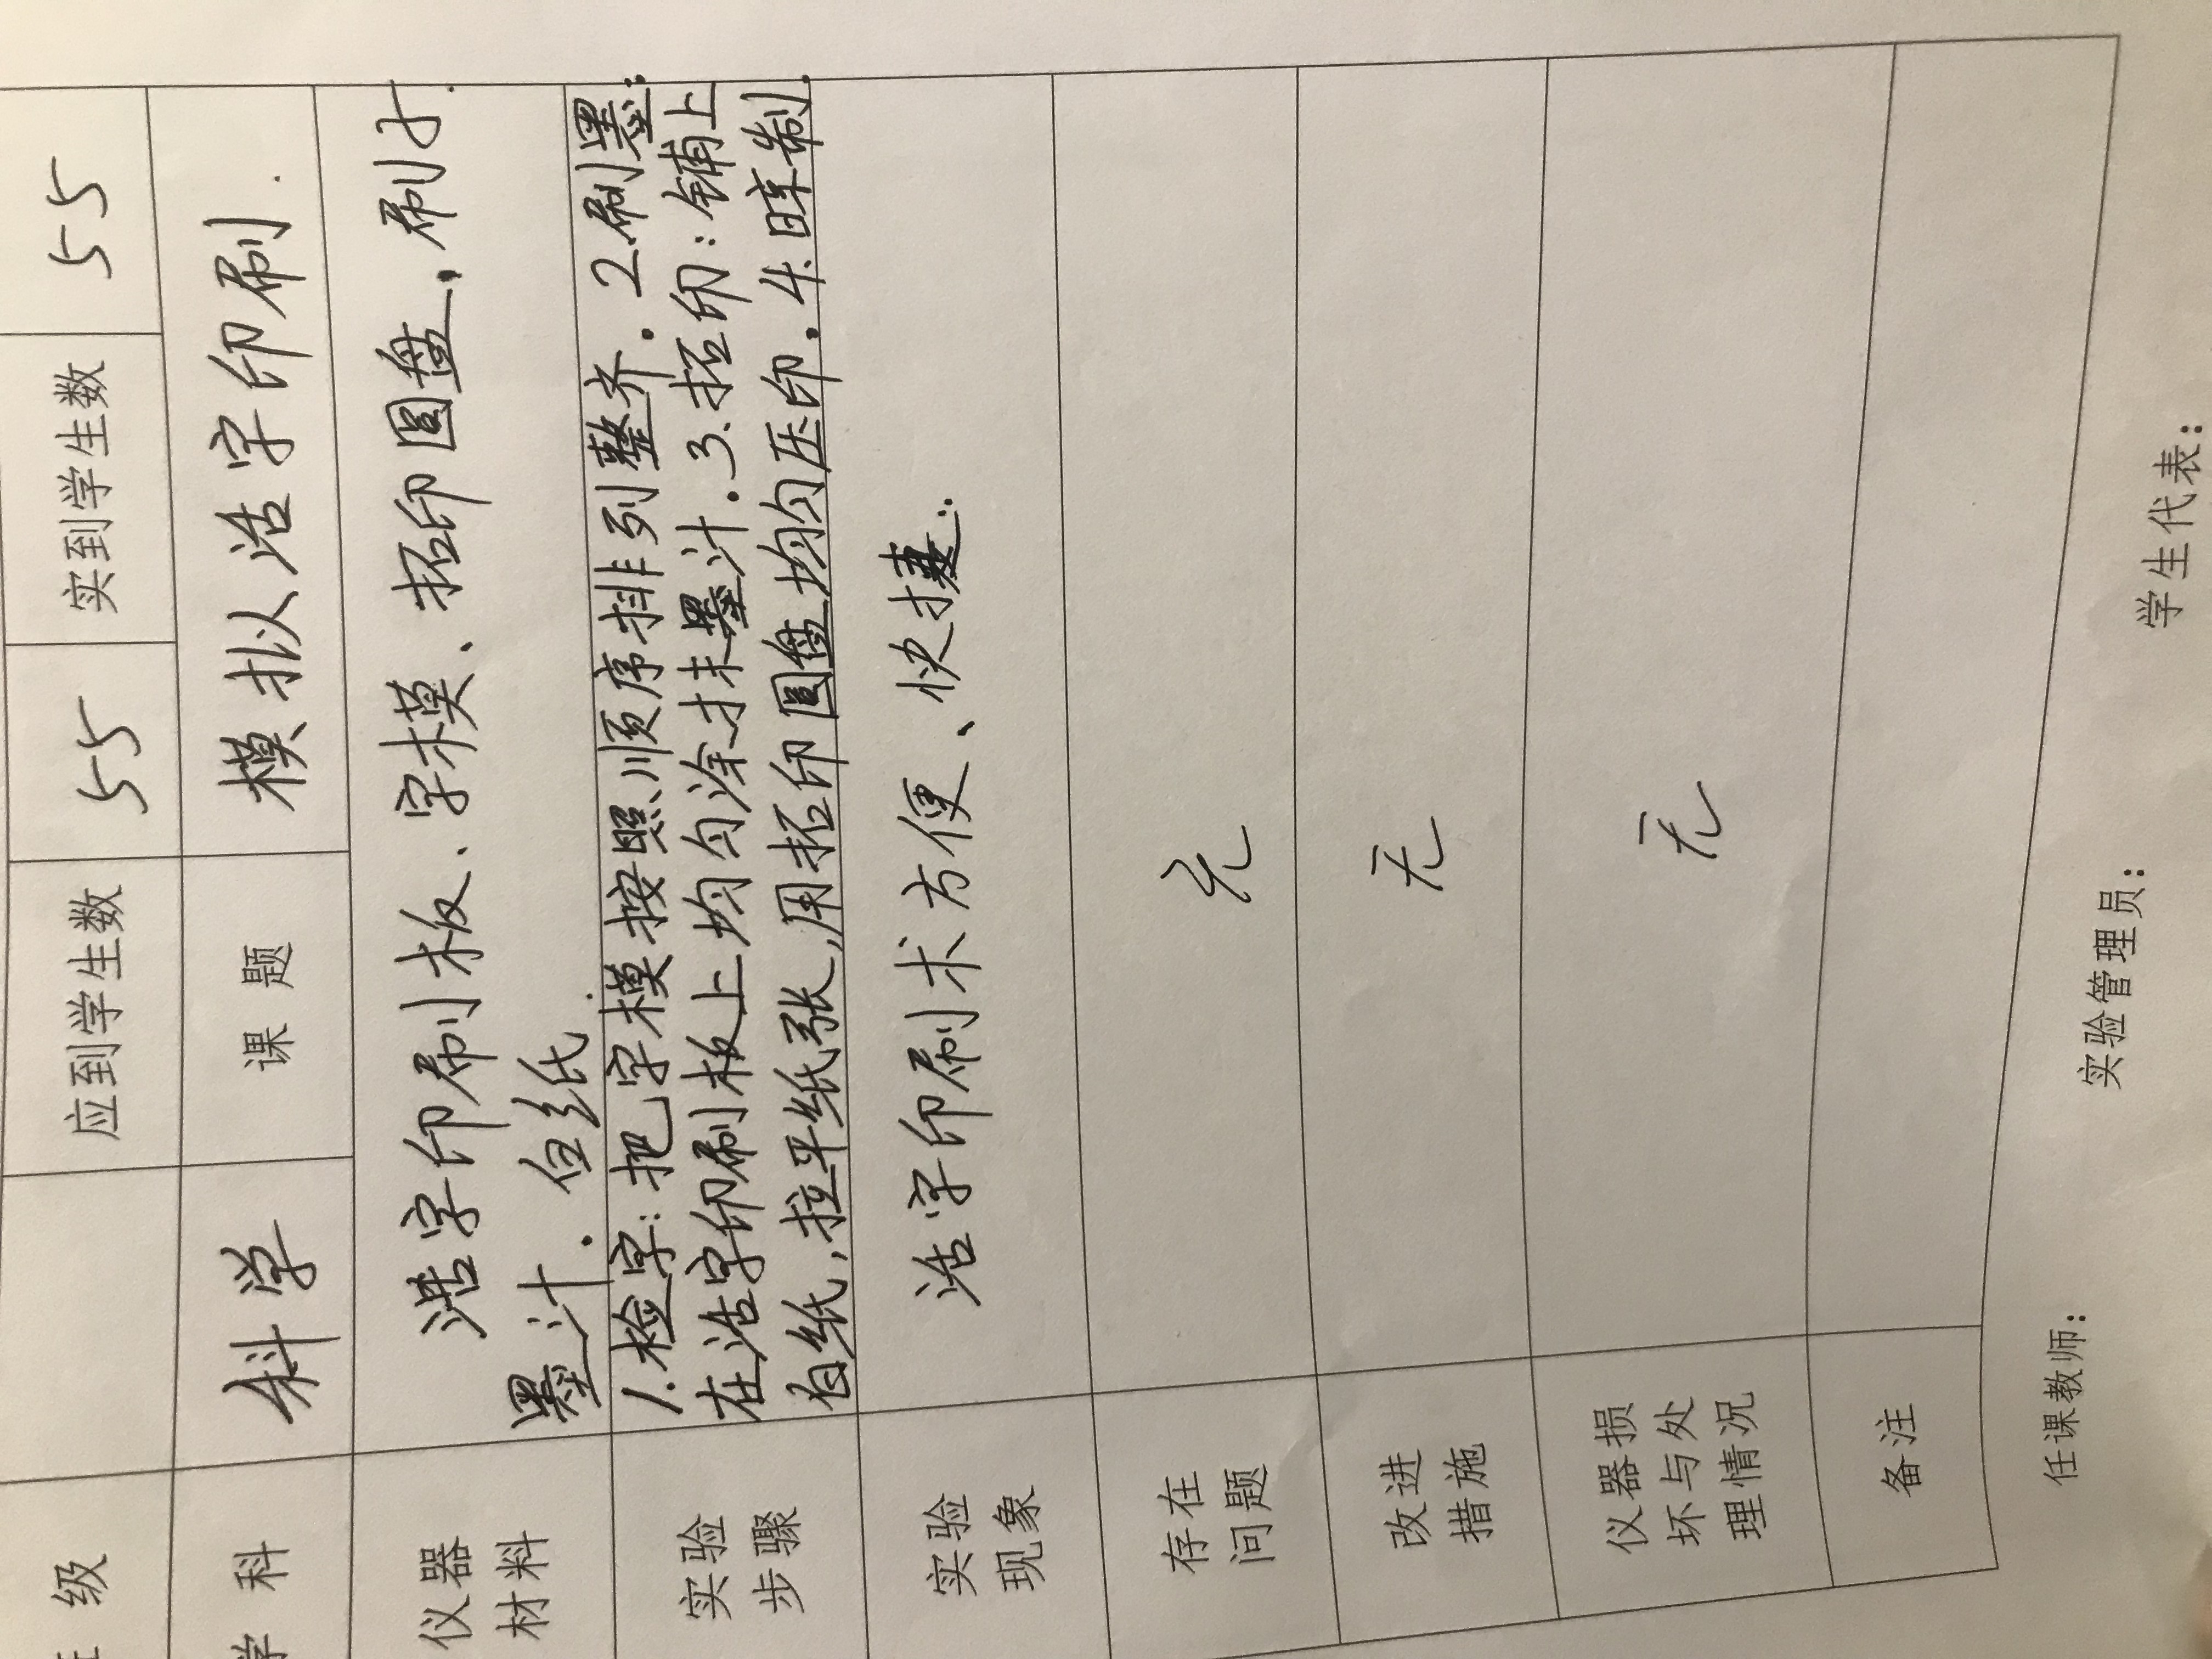 级 应到学生数 55 实到学生数 55
学 科 科学 课 题 模拟活字印刷.
仪器 活字印刷板、字模、拓印圆盘、刷子.
材料 墨汁.白纸.
1.检字:把字模按照顺序排列整齐.2.刷墨:
实验 在活字印刷板上均匀涂抹墨汁.3.拓印:铺上
步骤 白纸,拉平纸张,用拓印圆盘均匀压印.4.晾制.
实验 活字印刷术方便、快捷.
现象
存在 无
问题
改进 无
措施
仪器损 无
坏与处
理情况
备注
任课教师: 实验管理员: 学生代表: